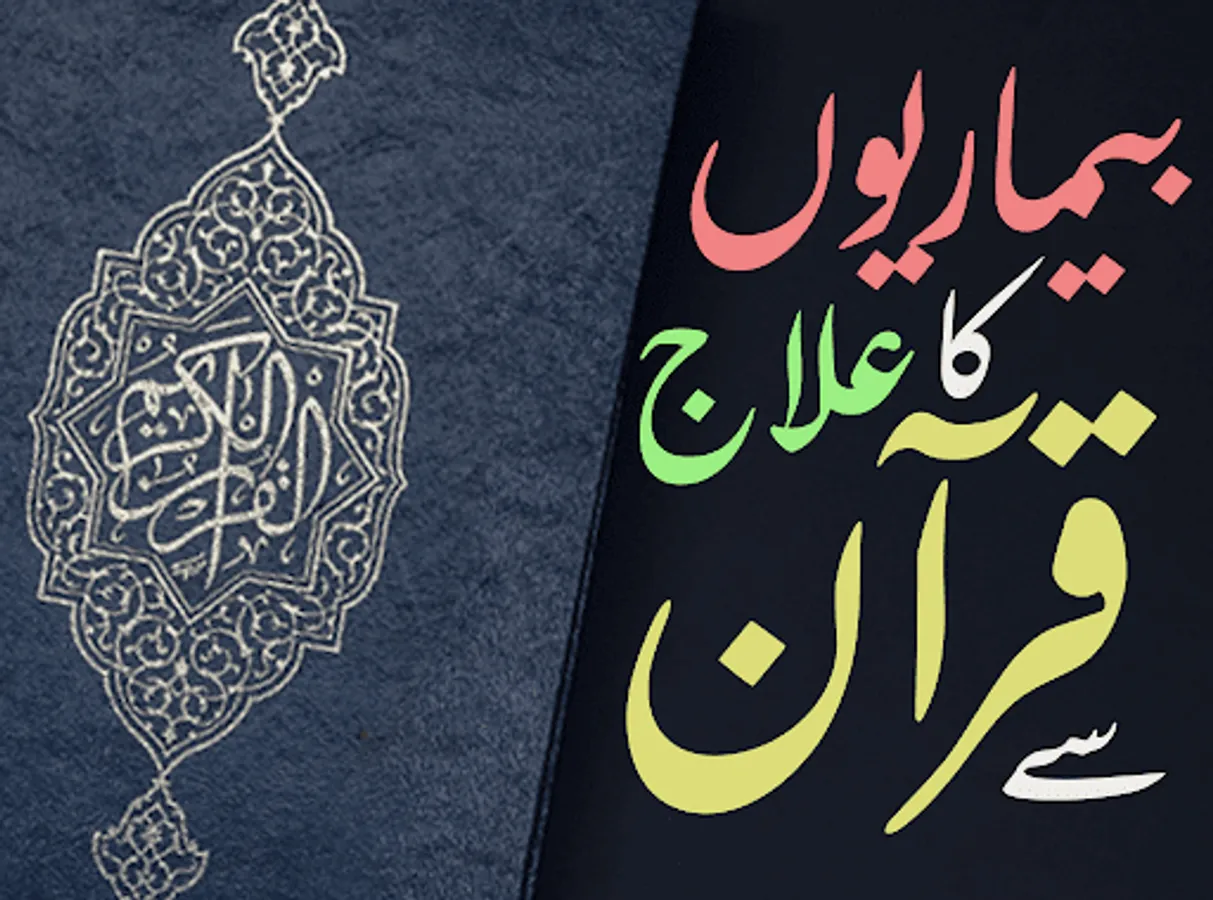 بیماریوں
کا علاج
قرآن
سے
القرآن الكريم